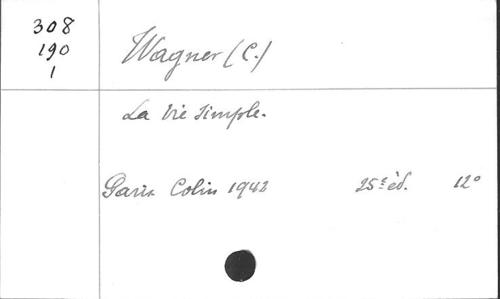 308
190
1
Wagner (C.)
La Vie simple.
Paris Colin 1942 25e éd. 12°